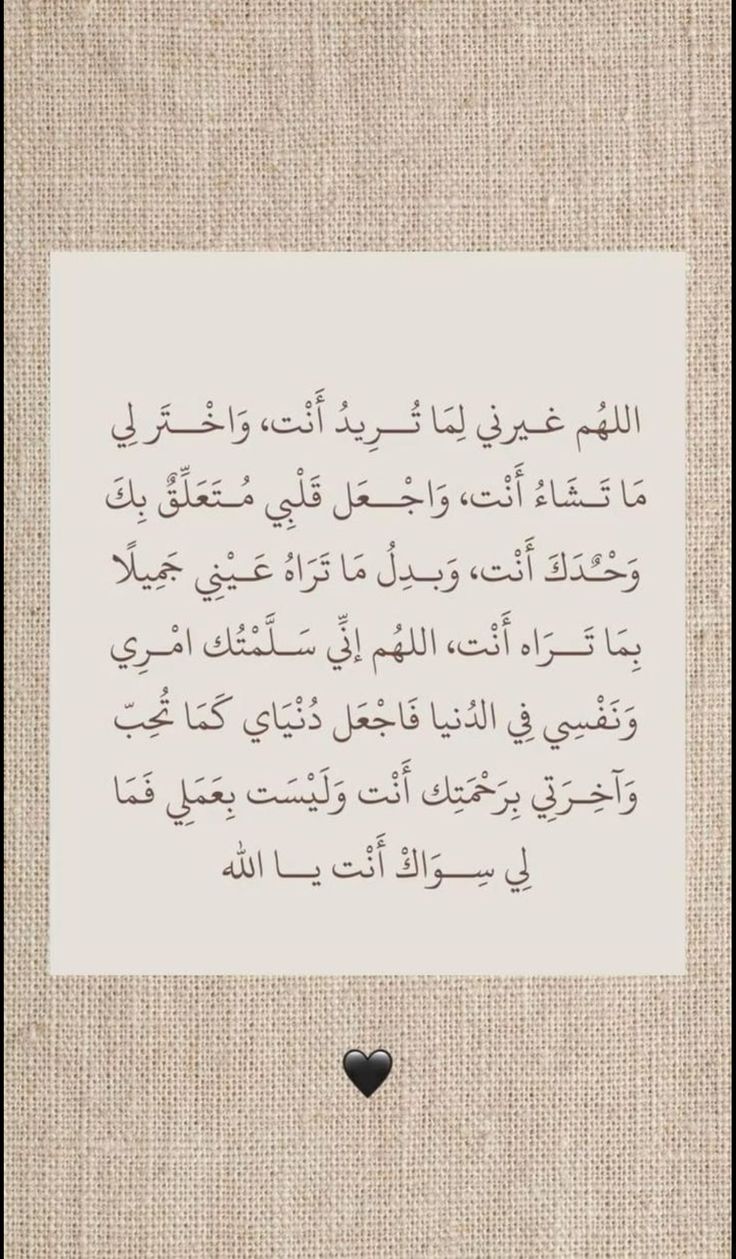 اللهُم غــيرني لِمَا تُـــرِيدُ أَنْت، وَاخْــتَر لِي
مَا تَــشَاءُ أَنْت، وَاجْــعَل قَلْبِي مُــتَعَلِّقٌ بِكَ
وَحْـٌدَكَ أَنْت، وَبــدِلُ مَا تَرَاهُ عَــيْنِي جَمِيلًا
بِمَا تَـــرَاه أَنْت، اللهُم إنِّي سَــلَّمْتُك امْــرِي
وَنَفْسِي فِي الدُنيا فَاجْعَل دُنْيَاي كَمَا تُحِبّ
وَآخِــرَتِي بِرَحْمَتِك أَنْت وَلَيْسَت بِعَمَلِي فَمَا
لِي سِــوَاكْ أَنْت يــا الله